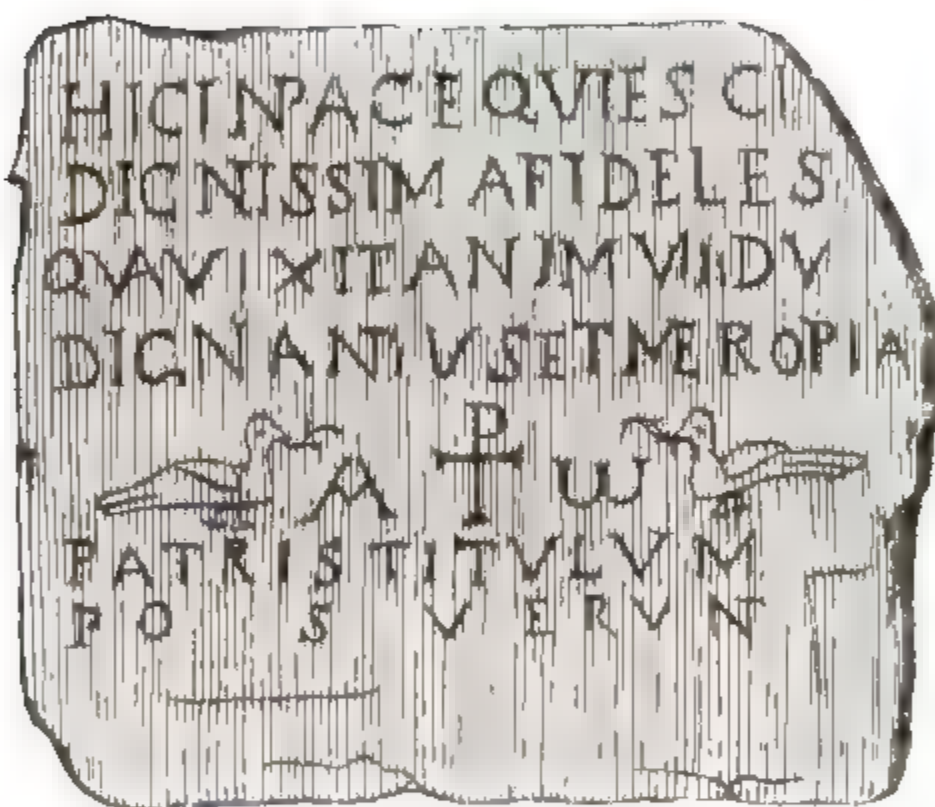 HICINPACEQVIESCI
DIGNISSIMAFIDELES
QVAVIXITANIMVIIDV
DIGNANTIVSETMEROPIA
A ⳨ ω
PATRISTITVLVM
POSVERVN